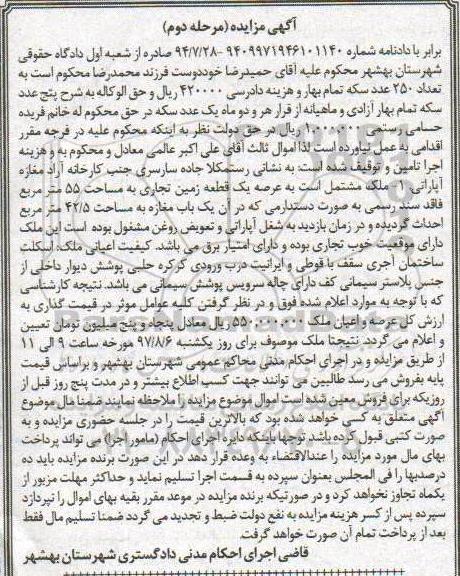 آگهی مزایده (مرحله دوم)
برابر با دادنامه شماره ۹۴۰۹۹۷۱۹۴۶۱۰۱۱۴۰ -۹۴/۷/۲۸ صادره از شعبه اول دادگاه حقوقی
شهرستان بهشهر محکوم علیه آقای حمیدرضا خوددوست فرزند محمدرضا محکوم است به
تعداد ۲۵۰ عدد سکه تمام بهار و هزینه دادرسی ۴۲۰۰۰۰ ریال و حق الوکاله به شرح پنج عدد
سکه تمام بهار آزادی و ماهیانه از قرار هر دو ماه یک عدد سکه در حق محکوم له خانم فریده
حسامی رستمی و ریال در حق دولت نظر به اینکه محکوم علیه در فرجه مقرر
اقدامی به عمل نیاورده است لذا اموال ثالث آقای علی اکبر عالمی معادل و محکوم به و هزینه
اجرا تامین و توقیف شده است: به نشانی رستمکلا جاده سارسری جنب کارخانه آراد مغازه
آپاراتی ۱- ملک مشتمل است به عرصه یک قطعه زمین تجاری به مساحت ۵۵ متر مربع
فاقد سند رسمی به صورت دستدارمی که در آن یک باب مغازه به مساحت ۴۲/۵ متر مربع
احداث گردیده و در زمان بازدید به شغل آپاراتی و تعویض روغن مشغول بوده است این ملک
دارای موقعیت خوب تجاری بوده و دارای امتیاز برق می باشد. کیفیت اعیانی ملک: اسکلت
ساختمان آجری سقف با قوطی و ایرانیت درب ورودی کرکره حلبی پوشش دیوار داخلی از
جنس پلاستر سیمانی کف دارای چاله سرویس پوشش سیمانی می باشد. نتیجه کارشناسی
که با توجه به موارد اعلام شده فوق و در نظر گرفتن کلیه عوامل موثر در قیمت گذاری به
ارزش کل عرصه و اعیان ملک ۵۵۰۰۰۰۰۰۰ ریال معادل پنجاه و پنج میلیون تومان تعیین
و اعلام می گردد. نتیجتا ملک موصوف برای روز یکشنبه ۹۷/۸/۶ مورخه ساعت ۹ الی ۱۱
از طریق مزایده و در اجرای احکام مدنی محاکم عمومی شهرستان بهشهر و براساس قیمت
پایه بفروش می رسد طالبین می توانند جهت کسب اطلاع بیشتر و در مدت پنج روز قبل از
روزیکه برای فروش معین شده است اموال موضوع مزایده را ملاحظه نمایند ضمنا مال موضوع
آگهی متعلق به کسی خواهد شده بود که بالاترین قیمت را در جلسه حضوری مزایده و به
صورت کتبی قبول کرده باشد توجها باینکه دایره اجرای احکام (مامور اجرا) می تواند پرداخت
بهای مال مورد مزایده را عندالاقتضاء به وعده قرار دهد در این صورت برنده مزایده باید ده
درصدبها را فی المجلس بعنوان سپرده به قسمت اجرا تسلیم نماید و حداکثر مهلت مزبور از
یکماه تجاوز نخواهد کرد و در صورتیکه برنده مزایده در موعد مقرر بقیه بهای اموال را نپردازد
سپرده پس از کسر هزینه مزایده به نفع دولت ضبط و تجدید می گردد ضمنا تسلیم مال فقط
بعد از پرداخت تمام آن صورت خواهد گرفت.
قاضی اجرای احکام مدنی دادگستری شهرستان بهشهر